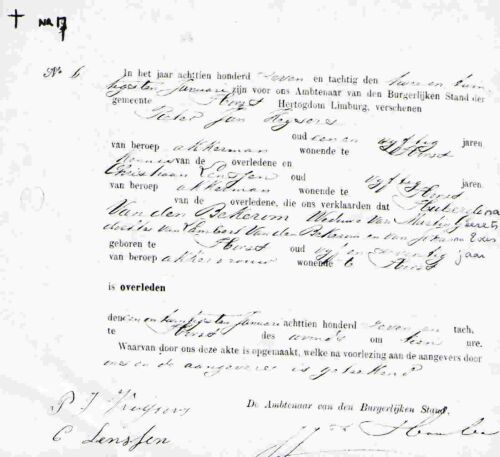 NR 17
No 6
In het jaar achttien honderd Zeven en tachtig den twee en twin
tigsten Januari zijn voor ons Ambtenaar van den Burgerlijken Stand der
gemeente Horst Hertogdom Limburg, verschenen
Peter Jan
oud een en vyftig jaren
van beroep akkerman wonende te Horst
van de overledene en
Christiaan Lenssen oud vyftig jaren
van beroep akkerman wonende te Horst
van de overledene, die ons verklaarden dat Huberdina
Van den Bekerom Weduwe van Martin
dochter van Lambert Van den Bekerom en van
geboren te Horst oud vyf en zeventig jaar
van beroep akkervrouw wonende te Horst
is overleden
den een en twintigsten Januari achttien honderd Zeven en tach.
te Horst des avonds om tien ure.
Waarvan door ons deze akte is opgemaakt, welke na voorlezing aan de aangevers door
ons en de aangevers is geteekend
De Ambtenaar van den Burgerlijken Stand,
P J
C Lenssen